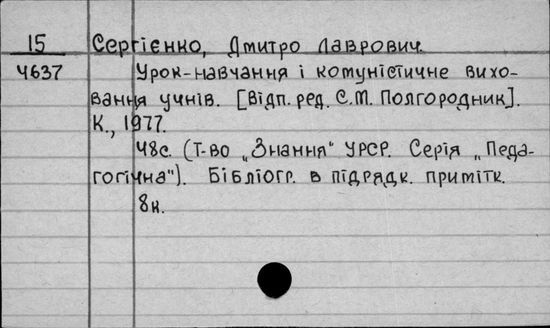 15 Сергієнко, Дмитро Лаврович.
4637 Урок-навчання і комуністичне вихо-
вання учнів. [Відп. ред. С.М. Полгородник].
К., 1977.
48с. (Т-во „Знання" УРСР. Серія „Педа-
гогічна"). Бібліогр. в підрядк. примітк.
8к.